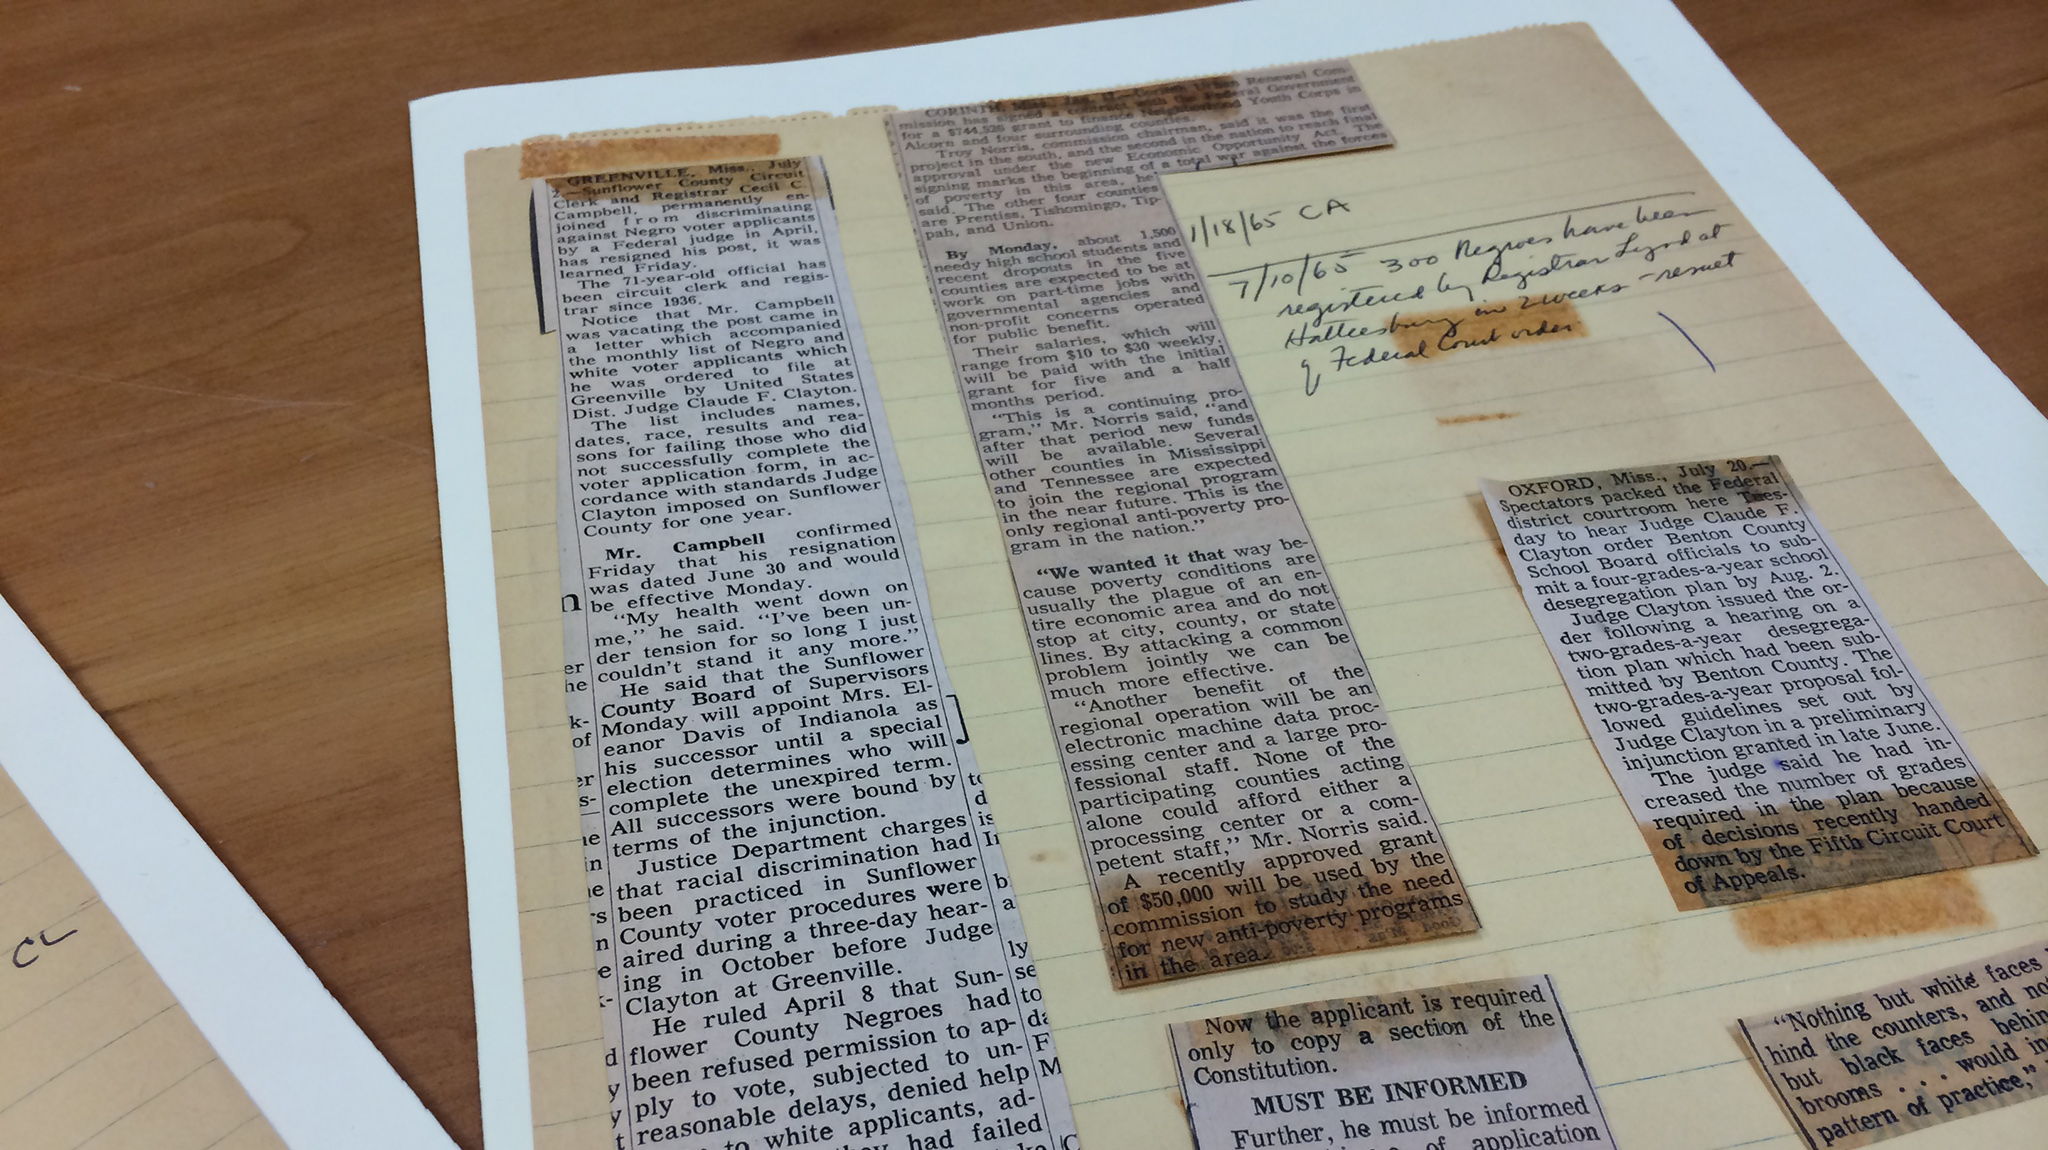 GREENVILLE, Miss., July
2.—Sunflower County Circuit
Clerk and Registrar Cecil C.
Campbell, permanently en-
joined from discriminating
against Negro voter applicants
by a Federal judge in April,
has resigned his post, it was
learned Friday.
The 71-year-old official has
been circuit clerk and regis-
trar since 1936.
Notice that Mr. Campbell
was vacating the post came in
a letter which accompanied
the monthly list of Negro and
white voter applicants which
he was ordered to file at
Greenville by United States
Dist. Judge Claude F. Clayton.
The list includes names,
dates, race, results and rea-
sons for failing those who did
not successfully complete the
voter application form, in ac-
cordance with standards Judge
Clayton imposed on Sunflower
County for one year.
Mr. Campbell confirmed
Friday that his resignation
was dated June 30 and would
be effective Monday.
"My health went down on
me," he said. "I've been un-
der tension for so long I just
couldn't stand it any more."
He said that the Sunflower
County Board of Supervisors
Monday will appoint Mrs. El-
eanor Davis of Indianola as
his successor until a special
election determines who will
complete the unexpired term.
All successors were bound by
terms of the injunction.
Justice Department charges
that racial discrimination had
been practiced in Sunflower
County voter procedures were
aired during a three-day hear-
ing in October before Judge
Clayton at Greenville.
He ruled April 8 that Sun-
flower County Negroes had
been refused permission to ap-
ply to vote, subjected to un-
reasonable delays, denied help
to white applicants, ad-
they had failed
CORINTH, Miss., Jan. Urban Renewal Com-
mission has signed a contract with the Federal Government
for a $744,526 grant to finance Neighborhood Youth Corps in
Alcorn and four surrounding counties.
Troy Norris, commission chairman, said it was the first
project in the south, and the second in the nation to reach final
approval under the new Economic Opportunity Act. The
signing marks the beginning of a total war against the forces
of poverty in this area, he
said. The other four counties
are Prentiss, Tishomingo, Tip-
pah, and Union.
By Monday, about 1,500
needy high school students and
recent dropouts in the five
counties are expected to be at
work on part-time jobs with
governmental agencies and
non-profit concerns operated
for public benefit.
Their salaries, which will
range from $10 to $30 weekly,
will be paid with the initial
grant for five and a half
months period.
"This is a continuing pro-
gram," Mr. Norris said, "and
after that period new funds
will be available. Several
other counties in Mississippi
and Tennessee are expected
to join the regional program
in the near future. This is the
only regional anti-poverty pro-
gram in the nation."
"We wanted it that way be-
cause poverty conditions are
usually the plague of an en-
tire economic area and do not
stop at city, county, or state
lines. By attacking a common
problem jointly we can be
much more effective.
"Another benefit of the
regional operation will be an
electronic machine data proc-
essing center and a large pro-
fessional staff. None of the
participating counties acting
alone could afford either a
processing center or a com-
petent staff," Mr. Norris said.
A recently approved grant
of $50,000 will be used by the
commission to study the need
for new anti-poverty programs
in the area.
1/18/65 CA
7/10/65 300 Negroes have been
registered by Registrar Lynd at
Hattiesburg in 2 weeks - result
of Federal Court order
OXFORD, Miss., July 20.—
Spectators packed the Federal
district courtroom here Tues-
day to hear Judge Claude F.
Clayton order Benton County
School Board officials to sub-
mit a four-grades-a-year school
desegregation plan by Aug. 2.
Judge Clayton issued the or-
der following a hearing on a
two-grades-a-year desegrega-
tion plan which had been sub-
mitted by Benton County. The
two-grades-a-year proposal fol-
lowed guidelines set out by
Judge Clayton in a preliminary
injunction granted in late June.
The judge said he had in-
creased the number of grades
required in the plan because
of decisions recently handed
down by the Fifth Circuit Court
of Appeals.
Now the applicant is required
only to copy a section of the
Constitution.
MUST BE INFORMED
Further, he must be informed
of application
"Nothing but white faces
hind the counters, and
but black faces behin
brooms . . . would in
pattern of practice,"